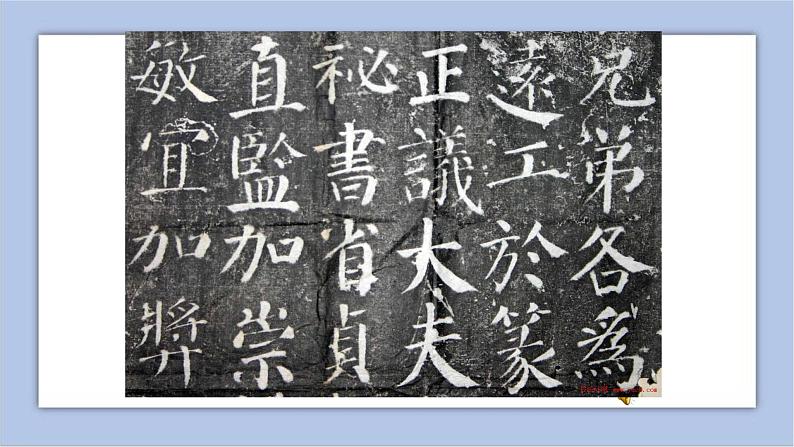 兄弟各爲
逺工於篆
正議大夫
祕書省貞
直監加崇
敏宜加奬